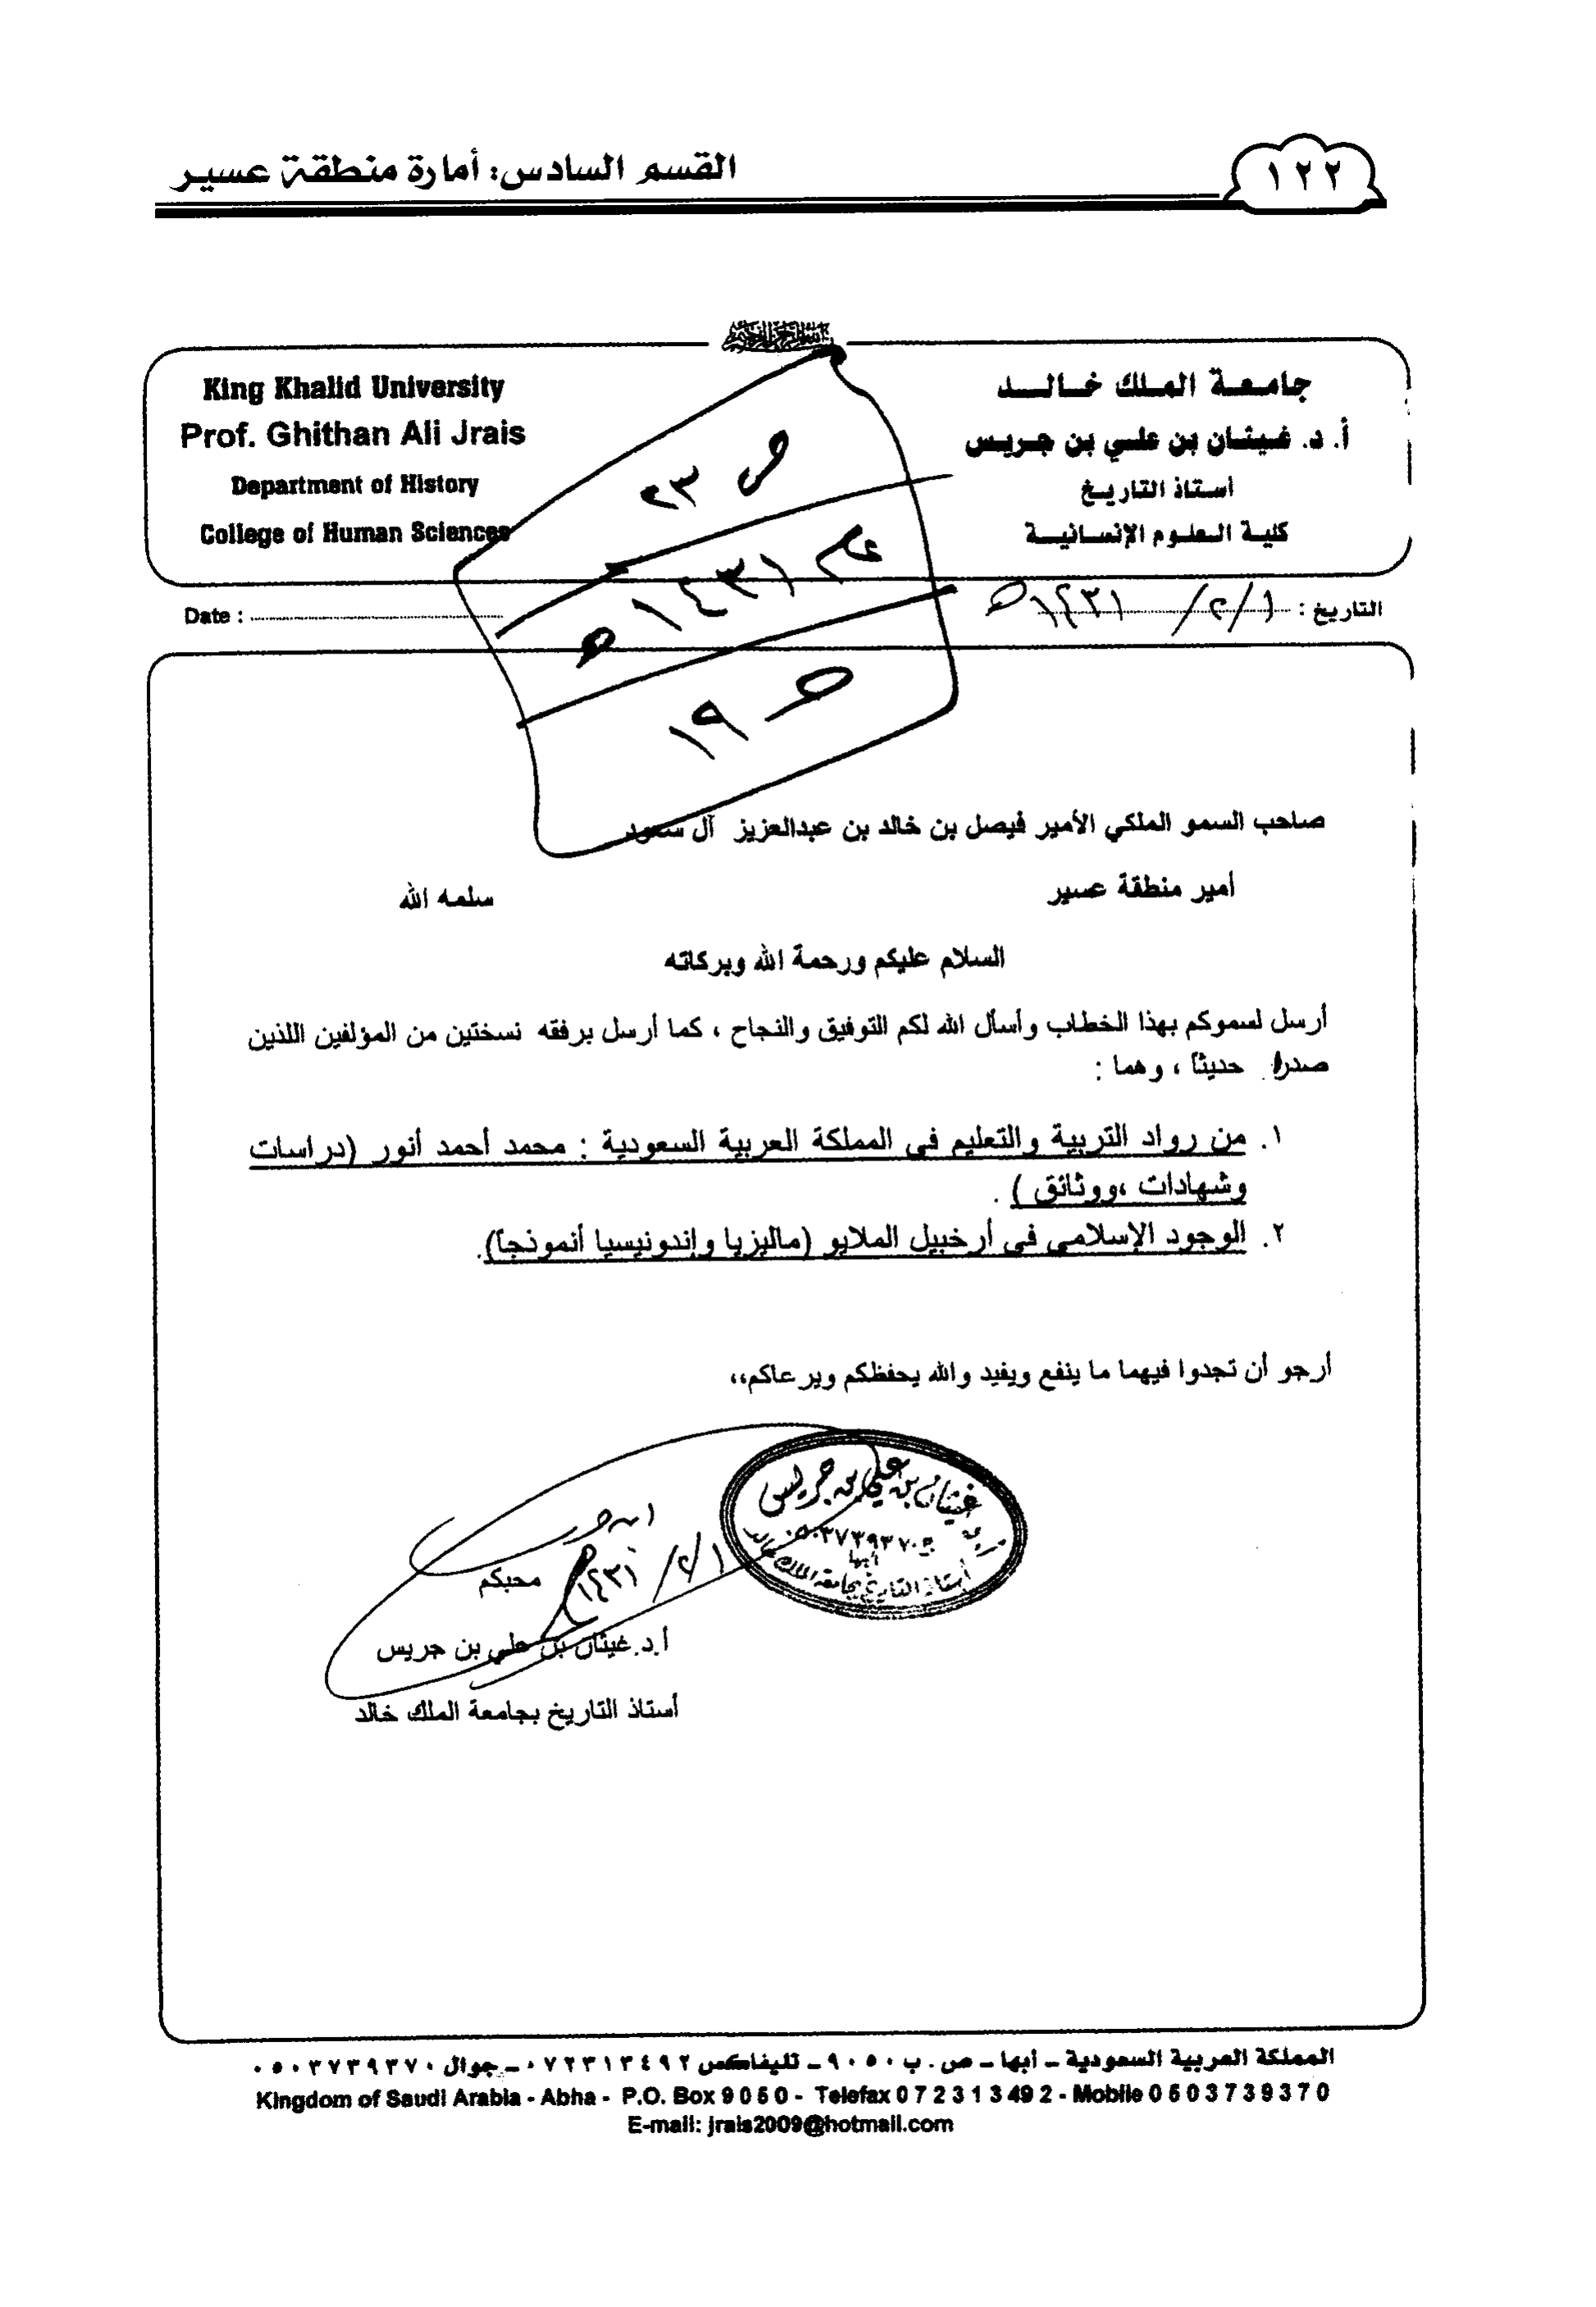 القسم السادس: أمارة منطقة عسير
١٢٢
جامعة الملك خالد
أ. د. غيثان بن علي بن جريس
أستاذ التاريخ
كلية العلوم الإنسانية
King Khalid University
Prof. Ghithan Ali Jrais
Department of History
College of Human Sciences
ص ٢٣
عام ١٤٣١هـ
ص ١٩
التاريخ : ١/ ٢/ ١٤٣١هـ
Date :
صاحب السمو الملكي الأمير فيصل بن خالد بن عبدالعزيز آل سعود
أمير منطقة عسير سلمه الله
السلام عليكم ورحمة الله وبركاته
أرسل لسموكم بهذا الخطاب وأسأل الله لكم التوفيق والنجاح ، كما أرسل برفقه نسختين من المؤلفين اللذين
صدرا حديثاً ، وهما :
١. من رواد التربية والتعليم في المملكة العربية السعودية : محمد أحمد أنور (دراسات
وشهادات ،ووثائق ) .
٢. الوجود الإسلامي في أرخبيل الملايو (ماليزيا وإندونيسيا أنموذجاً).
أرجو أن تجدوا فيهما ما ينفع ويفيد والله يحفظكم ويرعاكم،،
غيثان بن علي بن جريس
ج ٠٥٠٣٧٣٩٣٧٠
أبها
أستاذ التاريخ بجامعة الملك خالد
١/ ٢/ ١٤٣١هـ
محبكم
أ.د.غيثان بن علي بن جريس
أستاذ التاريخ بجامعة الملك خالد
المملكة العربية السعودية – أبها – ص . ب ٩٠٥٠ – تليفاكس ٠٧٢٣١٣٤٩٢ – جوال ٠٥٠٣٧٣٩٣٧٠
Kingdom of Saudi Arabia - Abha - P.O. Box 9 0 5 0 - Telefax 0 7 2 3 1 3 49 2 - Mobile 0 5 0 3 7 3 9 3 7 0
E-mail: jrais2009@hotmail.com